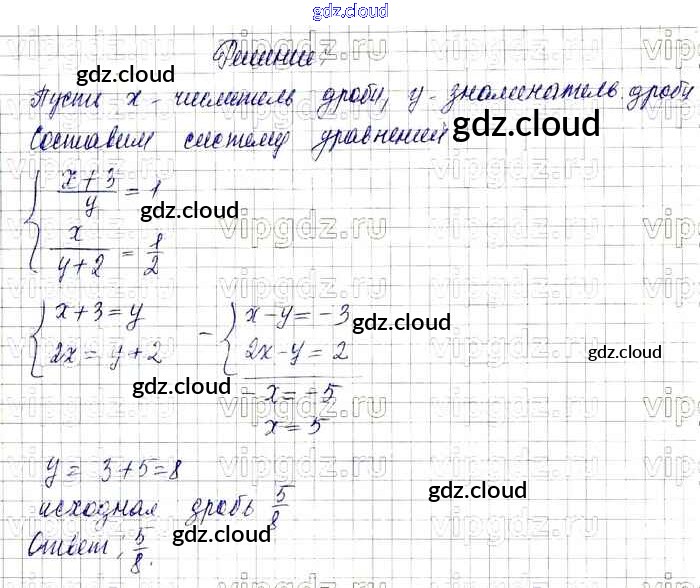 gdz.cloud
Решение:
Пусть x - числитель дроби, y - знаменатель дроби
Составим систему уравнений
gdz.cloud
gdz.cloud
{ (x+3)/y = 1
x/(y+2) = 1/2
gdz.cloud
{ x+3=y
2x=y+2
- { x-y=-3
2x-y=2
-x=-5
x=5
gdz.cloud
gdz.cloud
gdz.cloud
y = 3+5=8
исходная дробь 5/8
Ответ: 5/8.
gdz.cloud
gdz.cloud
gdz.cloud
vipgdz.ru